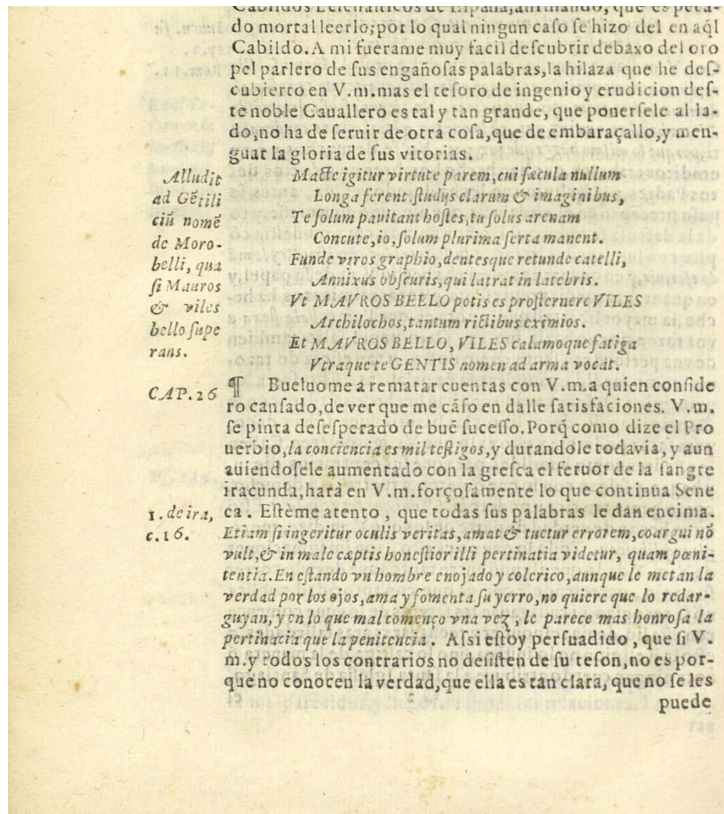 Cabildos Eclesiasticos de España, afirmando, que es peca-
do mortal leerlo; por lo qual ningun caſo ſe hizo del en aq̃l
Cabildo. A mi fuerame muy facil deſcubrir debaxo del oro
pel parlero de ſus engañoſas palabras, la hilaza que he deſ-
cubierto en V.m. mas el teſoro de ingenio y erudicion deſ-
te noble Cauallero es tal y tan grande, que ponerſele al la-
do, no ha de ſeruir de otra coſa, que de embaraçallo, y men-
guar la gloria de ſus vitorias.
Alludit
ad Gẽtili
ciũ nomẽ
de Moro-
belli, qua
ſi Mauros
& viles
bello ſupe
rans.
Macte igitur virtute parem, cui ſæcula nullum
Longa ferent ſtudijs clarum & imaginibus,
Te ſolum pauitant hoſtes, tu ſolus arenam
Concute, io, ſolum plurima ſerta manent.
Funde viros graphio, dentesque retunde catelli,
Annixus obſcuris, qui latrat in latebris.
Vt MAVROS BELLO potis es proſternere VILES
Archilochos, tantum rictibus eximios.
Et MAVROS BELLO, VILES calamoque fatiga
Vtraque te GENTIS nomen ad arma vocat.
CAP. 26
¶ Bueluome a rematar cuentas con V.m. a quien conſide
ro canſado, de ver que me cãſo en dalle ſatisfaciones. V.m.
ſe pinta deſeſperado de buẽ ſuceſſo. Porq̃ como dize el Pro
uerbio, la conciencia es mil teſtigos, y durandole todavia, y aun
auiendoſele aumentado con la greſca el feruor de la ſangre
iracunda, harà en V.m. forçoſamente lo que continua Sene
ca. Eſtème atento, que todas ſus palabras le dan encima.
1. de ira,
c. 16.
Etiam ſi ingeritur oculis veritas, amat & tuetur errorem, coargui nõ
vult, & in male cæptis honeſtior illi pertinatia videtur, quam pœni-
tentia. En eſtando vn hombre enojado y colerico, aunque le metan la
verdad por los ojos, ama y fomenta ſu yerro, no quiere que lo redar-
guyan, y en lo que mal començo vna vez, le parece mas honroſa la
pertinacia que la penitencia. Aſsi eſtoy perſuadido, que ſi V.
m. y todos los contrarios no deſiſten de ſu teſon, no es por-
que no conocen la verdad, que ella es tan clara, que no ſe les
puede